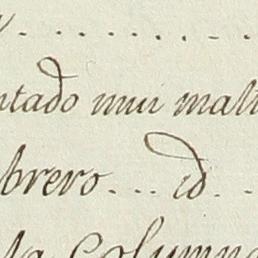 ntado mui malt
brero... id..
la Columna